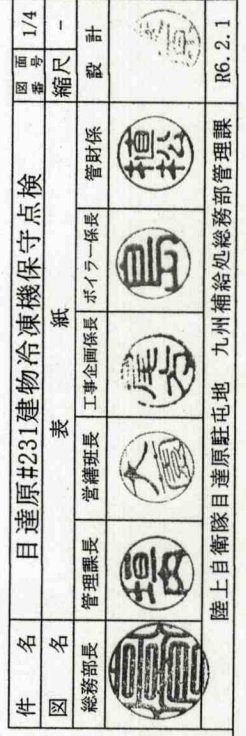 件 名 目達原#231建物冷凍機保守点検 図面番号 1/4
図 名 表 紙 縮尺 -
総務部長 管理課長 営繕班長 工事企画係長 ボイラー係長 管財係 設 計
島 植松
陸上自衛隊目達原駐屯地 九州補給処総務部管理課 R6.2.1